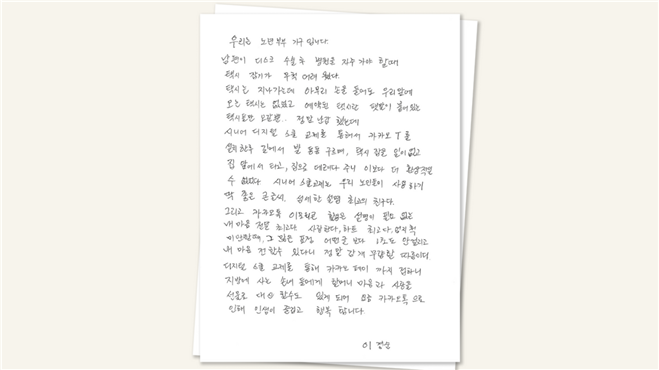 우리는 노년부부 가구 입니다.
남편이 디스크 수술 후 병원을 자주 가야 할때
택시 잡기가 무척 어려 웠다.
택시는 지나가는데 아무리 손을 들어도 우리앞에
오는 택시는 없었고 예약된 택시란 팻말이 붙어있는
택시로만 오갈뿐.. 정말 난감 했는데
시니어 디지털 스쿨 교재를 통해서 카카오 T를
설치한후 길에서 발 동동 구르며, 택시 잡은 일이없고
집 앞에서 타고, 집으로 데려다 주니 이보다 더 환상적일
수 없었다 시니어 스쿨교재는 우리 노인들이 사용 하기
딱 좋은 큰글씨. 상세한 설명 최고의 친구다.
그리고 카카오톡 이모티콘 활용은 설명이 필요 없는
내마음 전달 최고다 사랑한다, 하트 최고다, 엄지척
미안할때, 그 많은 표정 어떤글 보다 1초도 안걸리고
내 마음 전할수 있다니 정말 감개 무량할 따름이다
디지털 스쿨 교재를 통해 카카오 페이 까지 접하니
지방에 사는 손녀 들에게 할머니 마음과 사랑을
선물로 대신 할수도 있게 되어 요즘 카카오톡 으로
인해 인생이 즐겁고 행복 합니다.